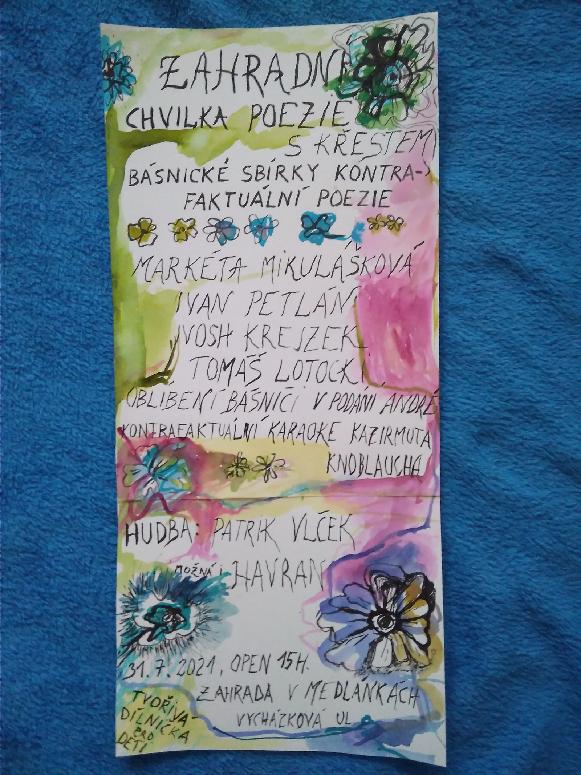 ZAHRADNÍ
CHVILKA POEZIE
S KŘESTEM
BÁSNICKÉ SBÍRKY KONTRA->
FAKTUÁLNÍ POEZIE
MARKÉTA MIKULÁŠKOVÁ
IVAN PETLAN
IVOSH KREJZEK
TOMÁŠ LOTOCKI
OBLÍBENÍ BÁSNÍCI V PODÁNÍ ANDRÉ
KONTRAFAKTUÁLNÍ KARAOKE KAZIRMUTA
KNOBLAUCHA
HUDBA: PATRIK VLČEK
MOŽNÁ I HAVRAN
31. 7. 2021, OPEN 15H.
ZAHRADA V MEDLÁNKÁCH
VYCHÁZKOVÁ UL.
TVOŘIVÁ
DÍLNIČKA
PRO
DĚTI